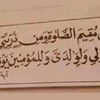 مُقِيمَ الصَّلَوٰةِ وَمِن ذُرِّيَّتِي
لِي وَلِوَٰلِدَيَّ وَلِلْمُؤْمِنِينَ يَوْمَ